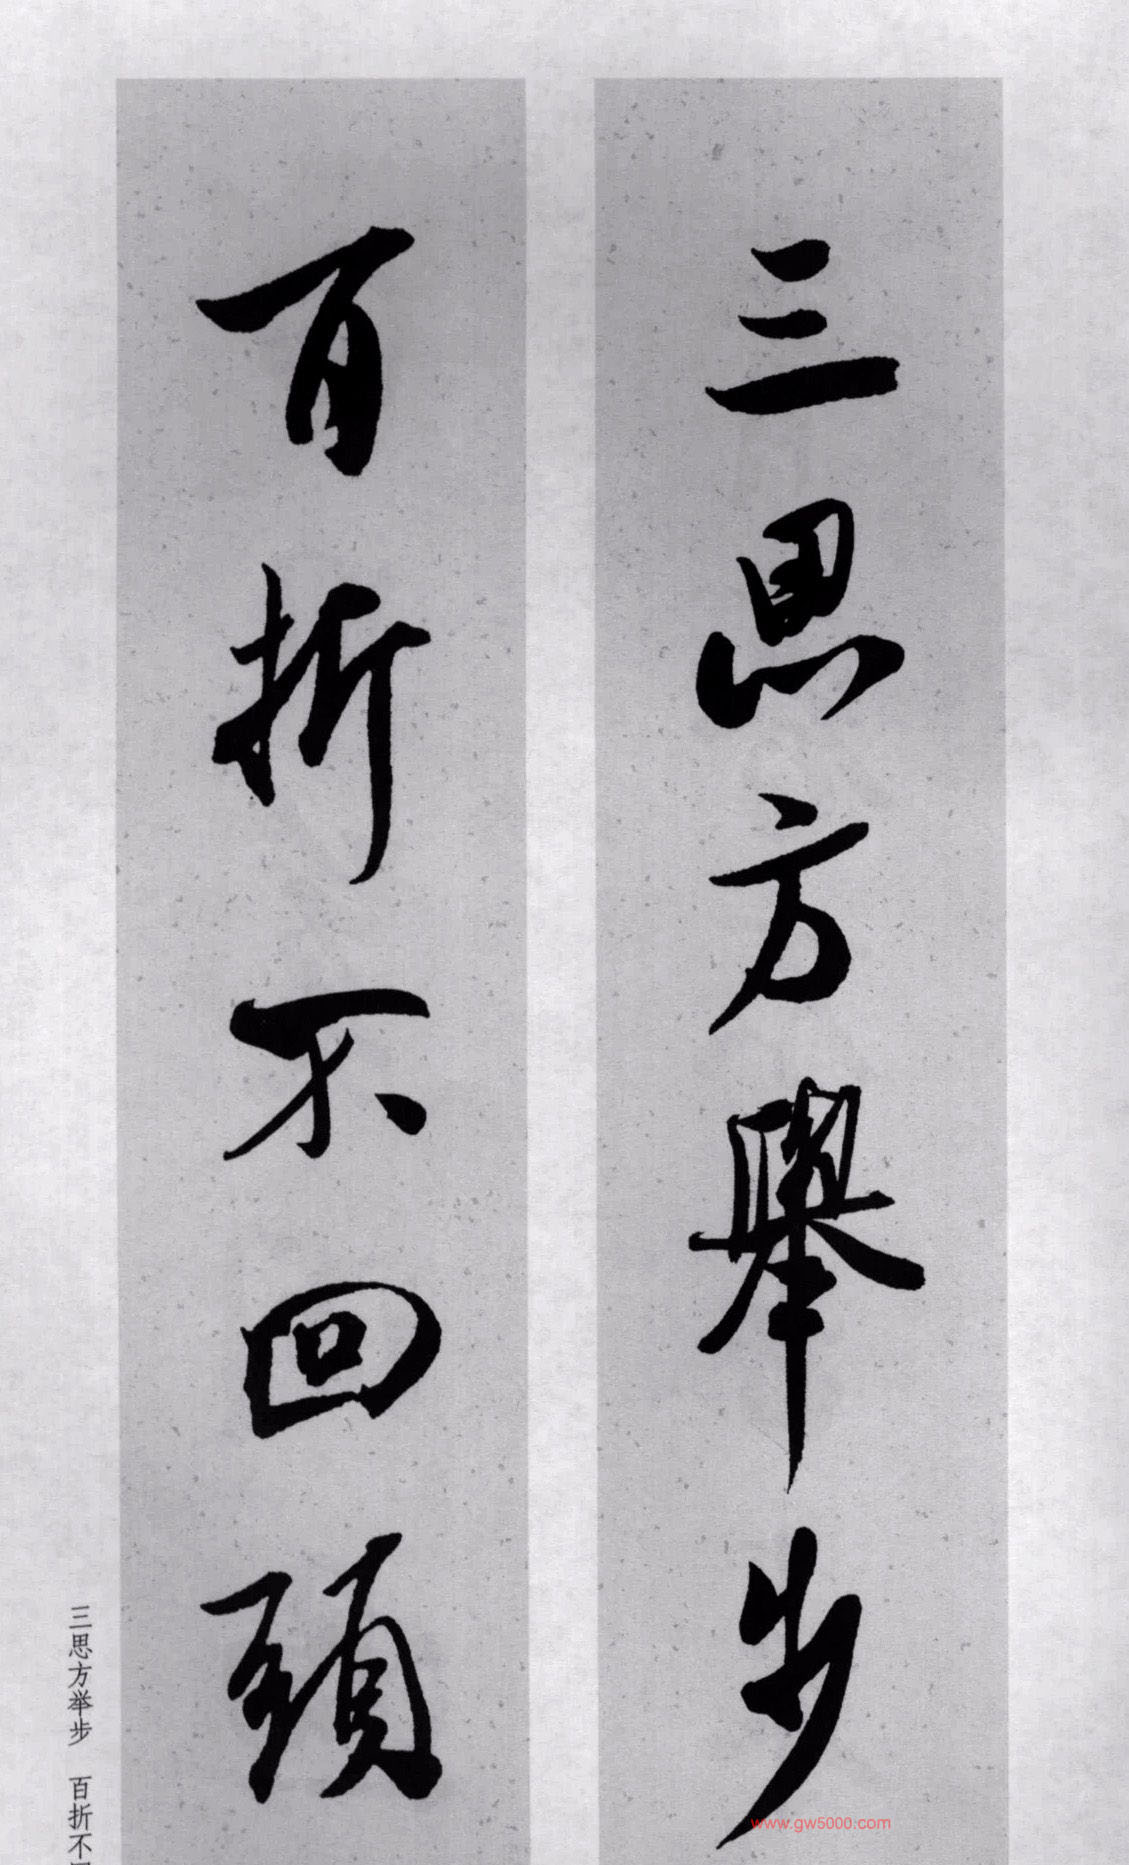 三思方舉步
百折不回頭
三思方举步 百折不
www.gw5000.com